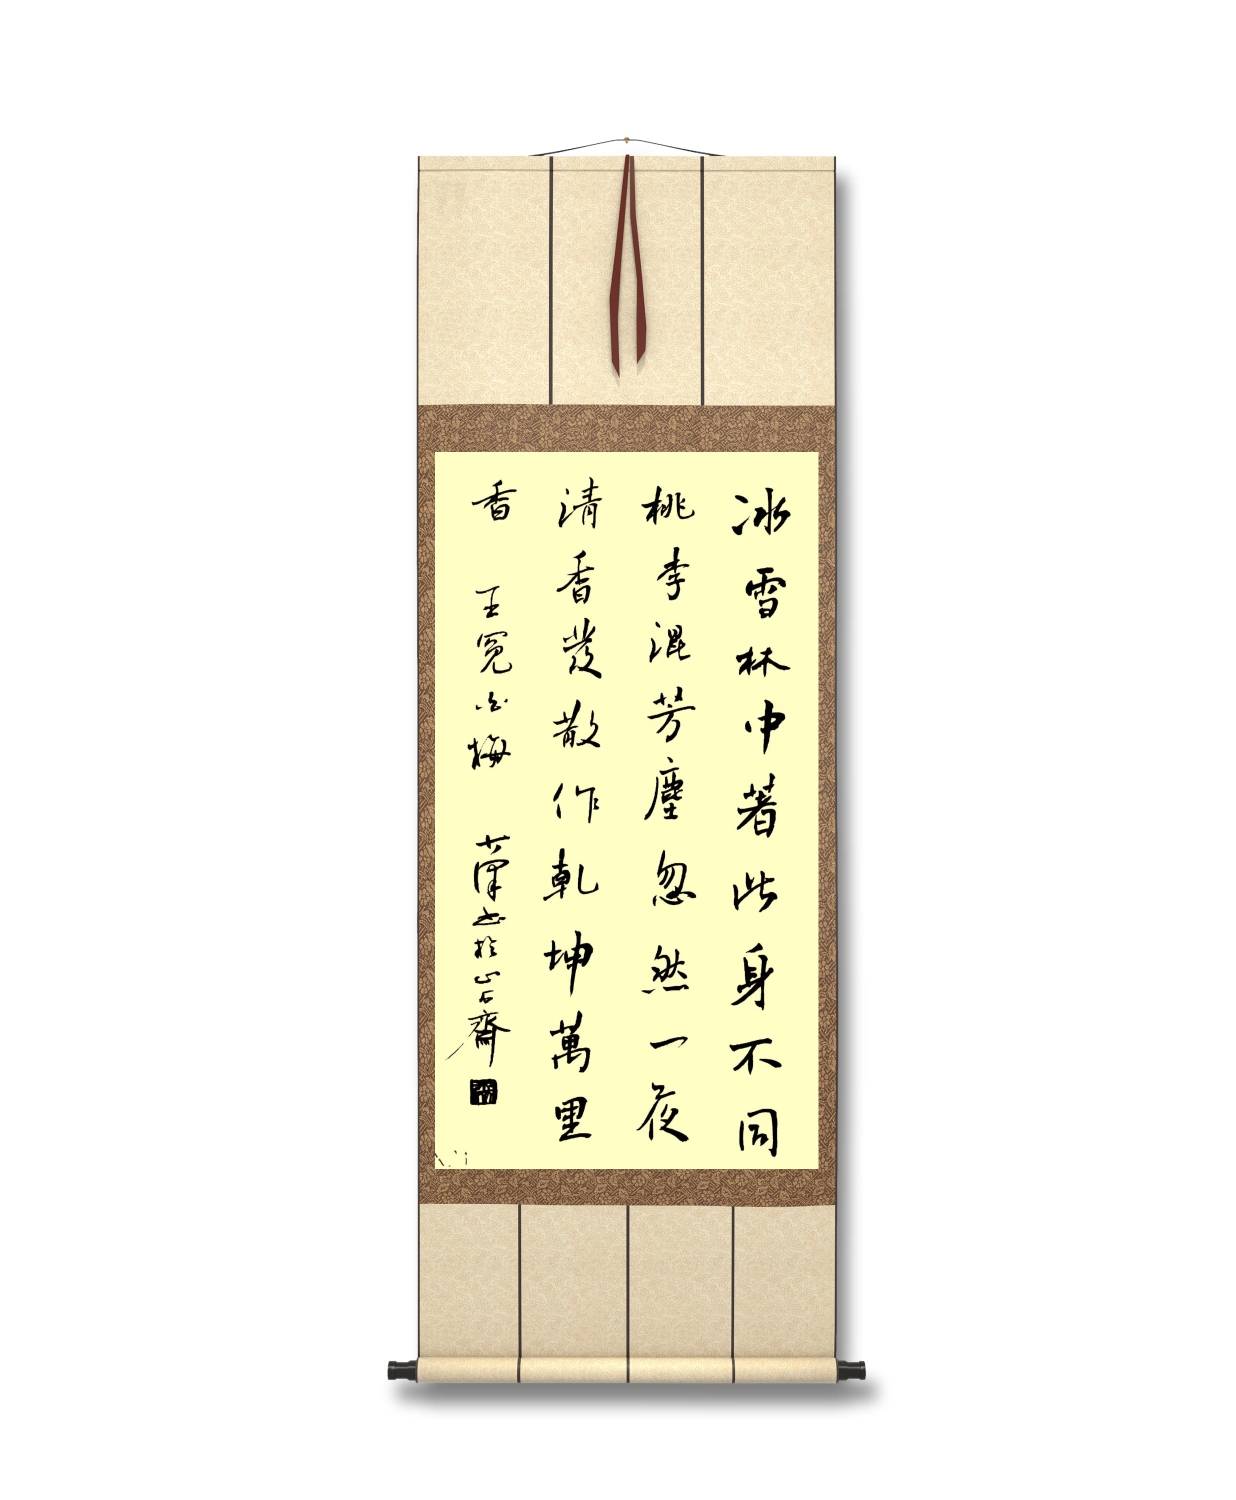 冰雪林中著此身不同
桃李混芳塵忽然一夜
清香發散作乾坤萬里
香 王冕白梅 书於山石齋